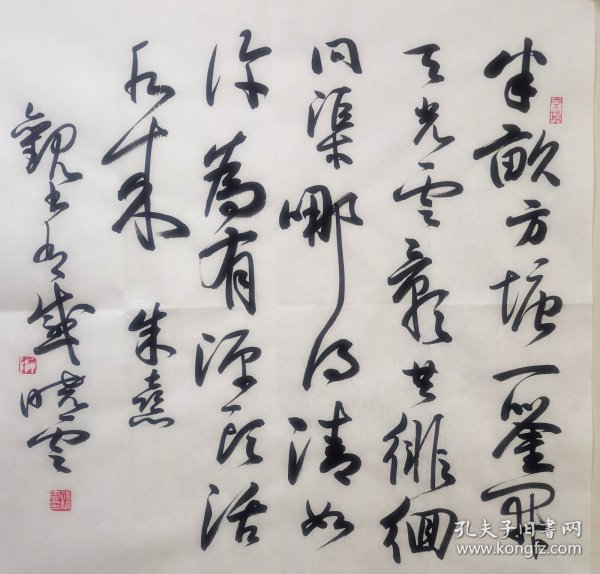 半畝方塘一鉴開
天光雲影共徘徊
问渠哪得清如
许為有源头活
水来 朱熹
觀书有感 晓雲
孔夫子旧书网
www.kongfz.com